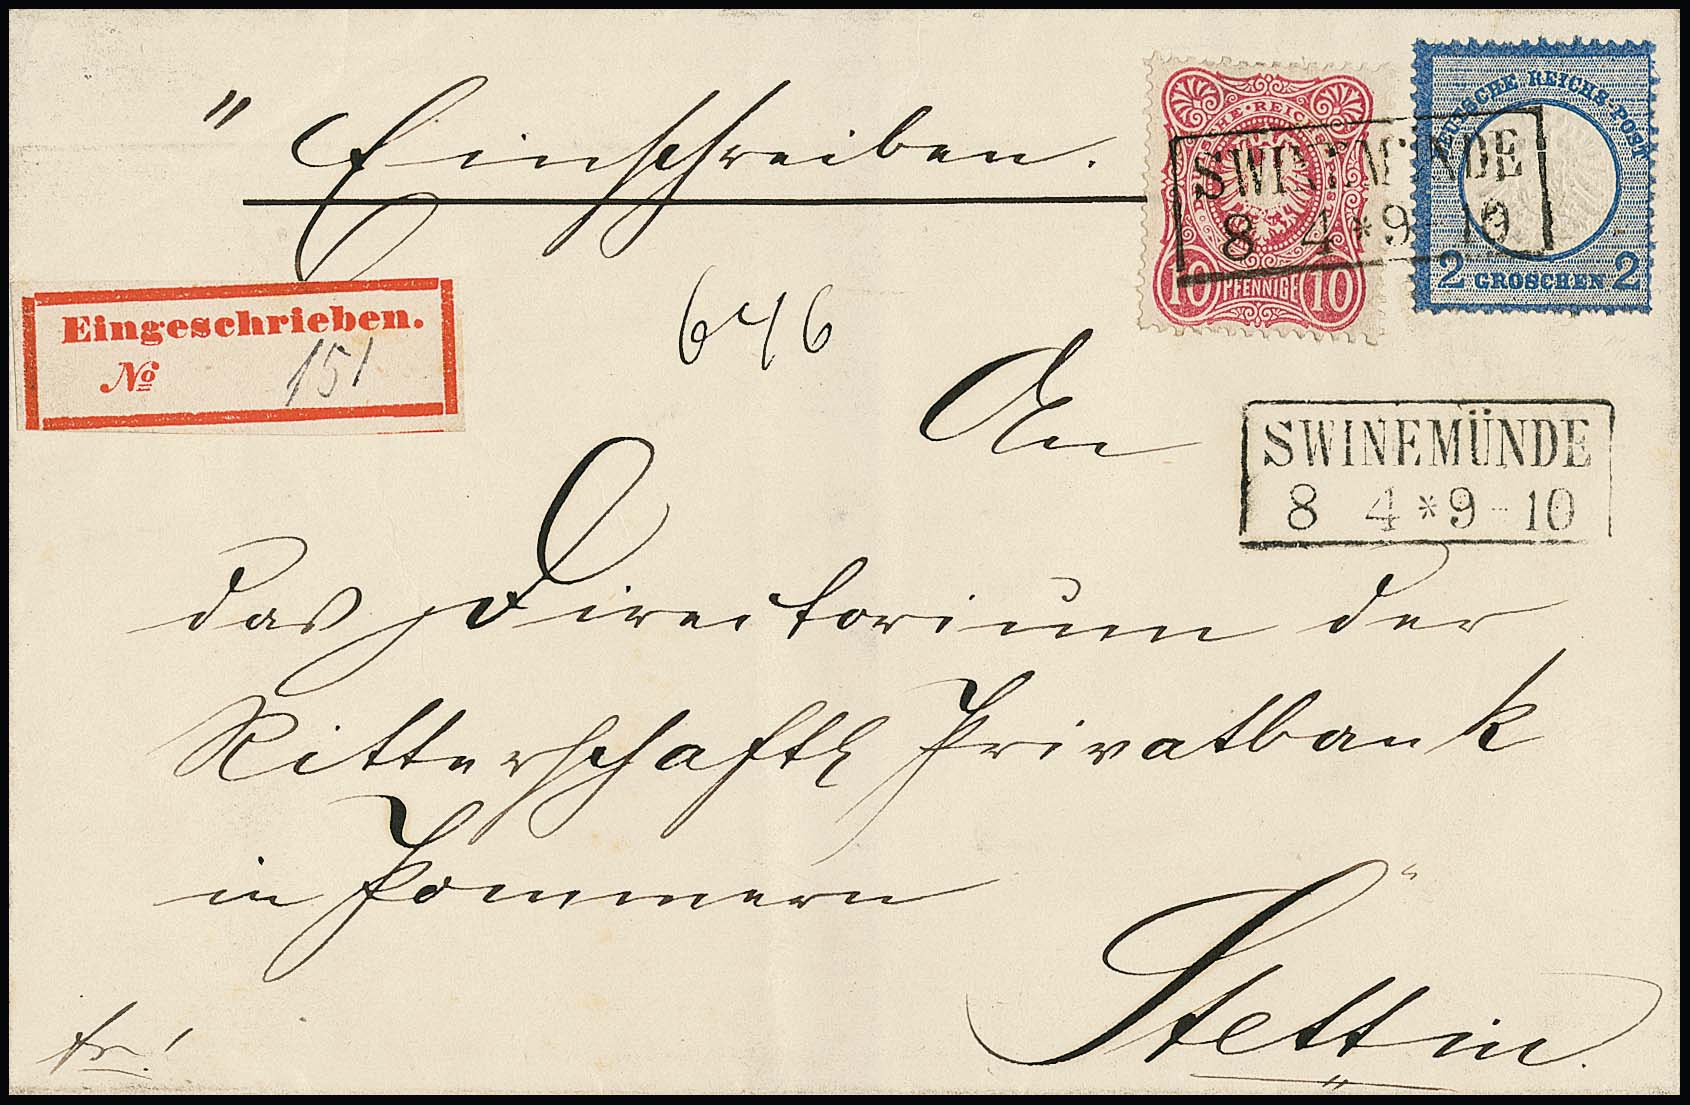 " Einschreiben.
DEUTSCHE REICHS-POST
2 GROSCHEN 2
REICHS
10 PFENNIGE 10
SWINEMÜNDE
8 4 * 9-10
Eingeschrieben.
№ 151
646
An
SWINEMÜNDE
8 4 * 9-10
das Directorium der
Ritterschaftl Privatbank
in Pommern
Stettin.
fr!